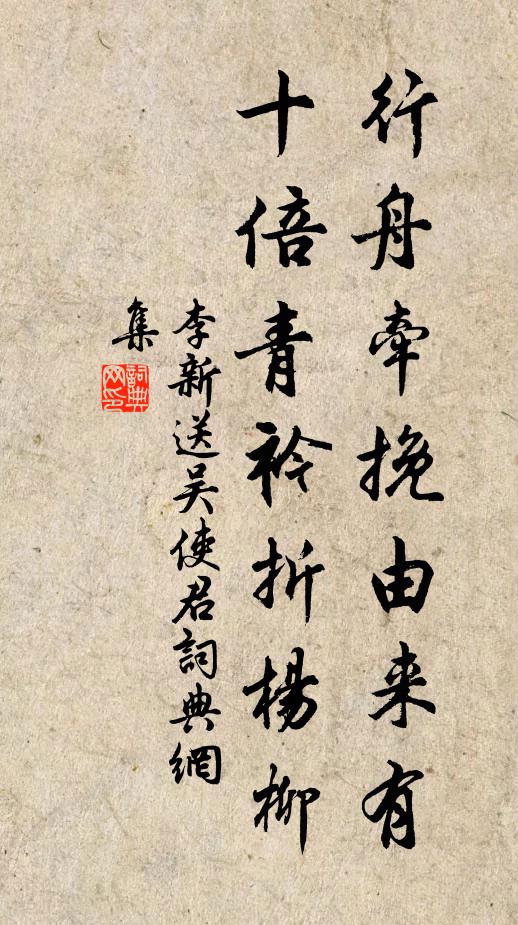 行舟牽挽由来有
十倍青衿折楊柳
李新送吴使君詞典網
集
詞典
网印